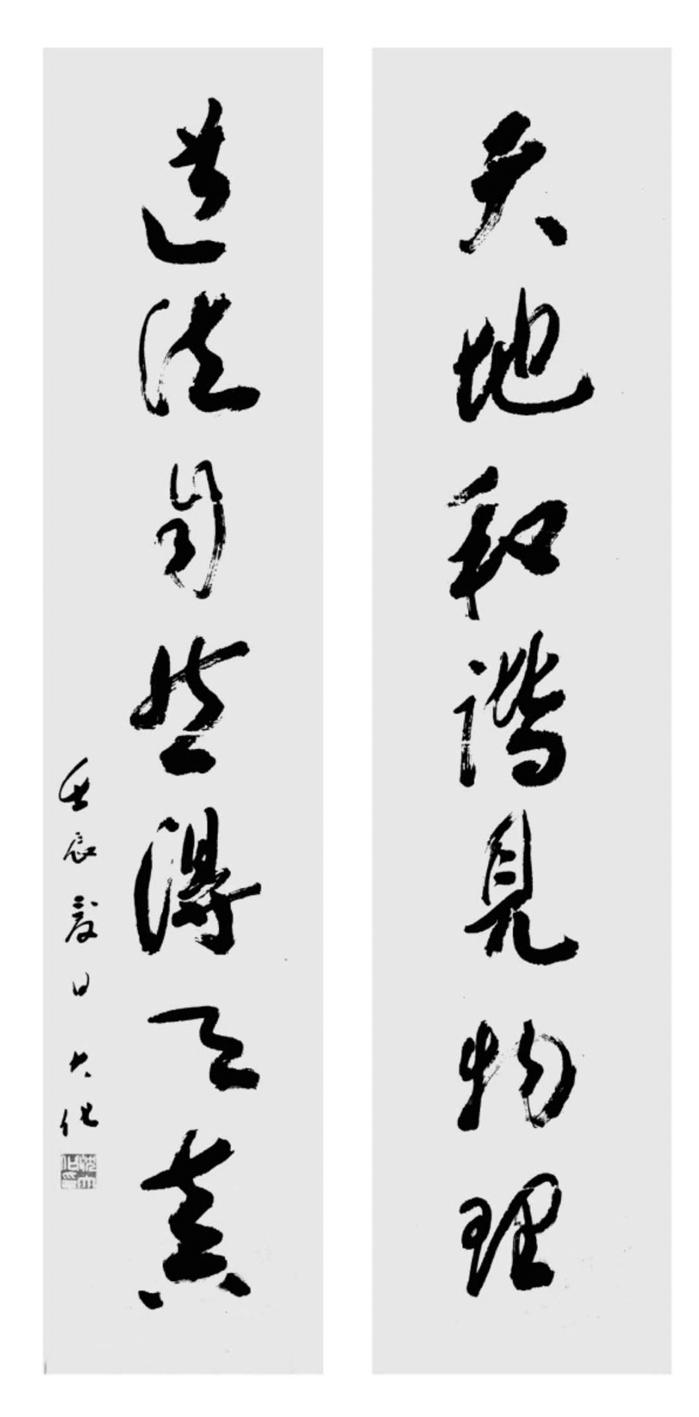 天地和谐見物理
道法自然得天真
壬辰夏日 大化